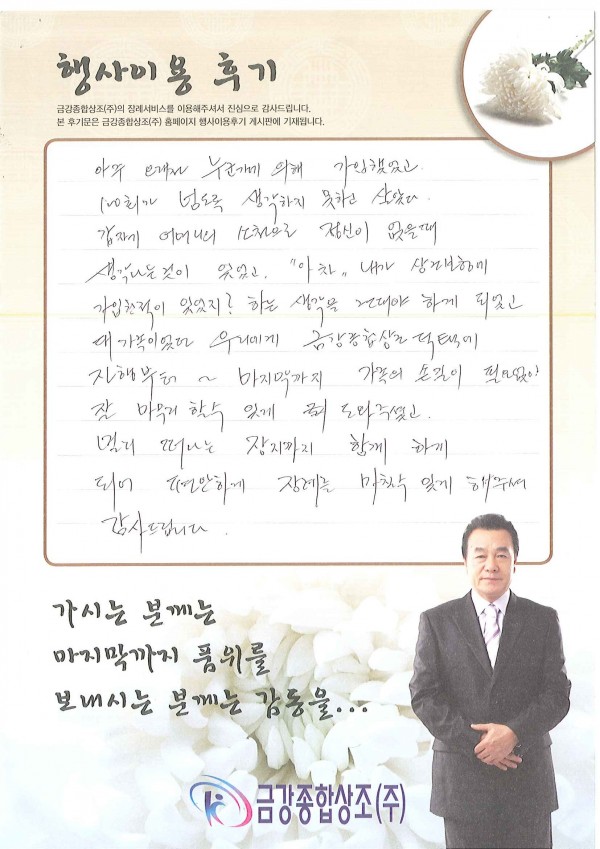 행사이용 후기
금강종합상조(주)의 장례서비스를 이용해주셔서 진심으로 감사드립니다.
본 후기문은 금강종합상조(주) 홈페이지 행사이용후기 게시판에 기재됩니다.
아주 오래전 누군가에 의해 가입했었고.
120회가 넘도록 생각하지 못하고 살았다.
갑자기 어머니의 소천으로 정신이 없을때
생각나는것이 있었고. "아차" 내가 상조보험에
가입한적이 있었지? 하는 생각을 하게 되었고
가족이었던 우리에게 금강종합상조 덕택에
진행부터 ~ 마지막까지 가족의 손길이 필요없이
잘 마무리 할수 있게 도와주셨고.
멀리 떠나는 장지까지 함께 하게
되어 편안하게 장례를 마칠수 있게 해주셔
감사드립니다.
가시는 분께는
마지막까지 품위를
보내시는 분께는 감동을...
금강종합상조(주)